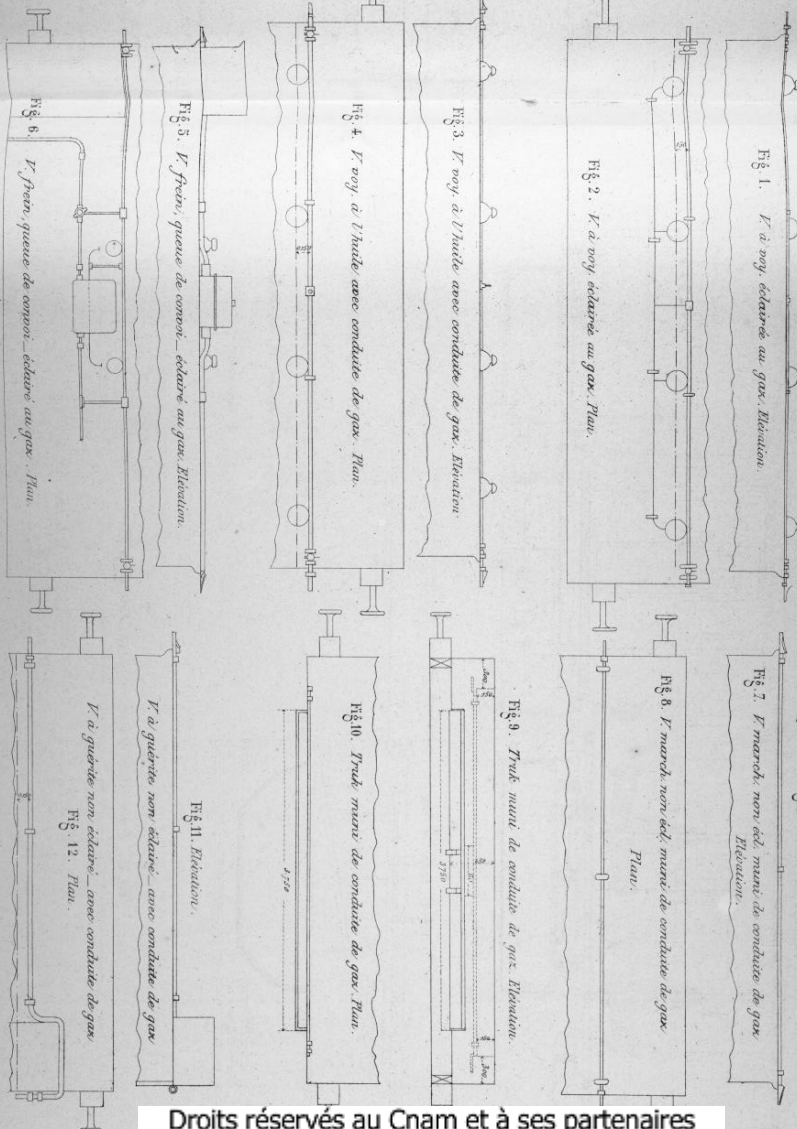 Fig. 1. V. à voy. éclairée au gaz. Elévation.
Fig. 2. V. à voy. éclairée au gaz. Plan.
Fig. 3. V. voy. à l'huile avec conduite de gaz. Elévation
Fig. 4. V. voy. à l'huile avec conduite de gaz. Plan.
Fig. 5. V. frein, queue de convoi_ éclairé au gaz. Elévation.
Fig. 6. V. frein, queue de convoi_ éclairé au gaz. Plan.
Fig. 7. V. march. non écl. muni de conduite de gaz
Elévation.
Fig. 8. V. march. non écl. muni de conduite de gaz
Plan.
Fig. 9. Truk muni de conduite de gaz. Elévation.
300
3750
300
Fig. 10. Truk muni de conduite de gaz. Plan.
3,750
Fig. 11. Elévation.
V. à guérite non éclairé_ avec conduite de gaz
V. à guérite non éclairé_ avec conduite de gaz
Fig. 12. Plan.
Droits réservés au Cnam et à ses partenaires